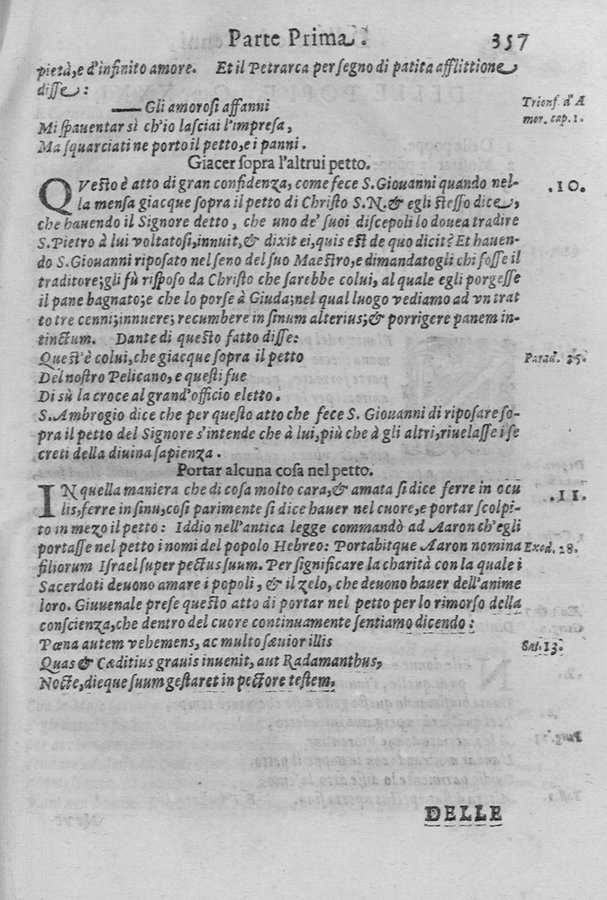 Parte Prima. 357
pietà, e d'infinito amore. Et il Petrarca per segno di patita afflittione
disse:
Gli amorosi affanni
Trionf. d'A
mor. cap. 1.
Mi spauentar sì ch'io lasciai l'impresa,
Ma squarciati ne porto il petto, e i panni.
Giacer sopra l'altrui petto.
QVesto è atto di gran confidenza, come fece S. Giouanni quando nel-
.10.
la mensa giacque sopra il petto di Christo S.N. & egli stesso dice,
che hauendo il Signore detto, che uno de' suoi discepoli lo douea tradire
S. Pietro à lui voltatosi, innuit, & dixit ei, quis est de quo dicit? Et hauen-
do S. Giouanni riposato nel seno del suo Maestro, e dimandatogli chi fosse il
traditore; gli fù risposo da Christo che sarebbe colui, al quale egli porgesse
il pane bagnato; e che lo porse à Giuda; nel qual luogo vediamo ad vn trat
to tre cenni; innuere; recumbere in sinum alterius; & porrigere panem in-
tinctum. Dante di questo fatto disse:
Quest'è colui, che giacque sopra il petto
Parad. 25.
Del nostro Pelicano, e questi fue
Di sù la croce al grand'officio eletto.
S. Ambrogio dice che per questo atto che fece S. Giouanni di riposare so-
pra il petto del Signore s'intende che à lui, più che à gli altri, riuelasse i se
creti della diuina sapienza.
Portar alcuna cosa nel petto.
IN quella maniera che di cosa molto cara, & amata si dice ferre in ocu
.11.
lis, ferre in sinu, così parimente si dice hauer nel cuore, e portar scolpi-
to in mezo il petto: Iddio nell'antica legge commandò ad Aaron ch'egli
portasse nel petto i nomi del popolo Hebreo: Portabitque Aaron nomina
Exod. 28.
filiorum Israel super pectus suum. Per significare la charità con la quale i
Sacerdoti deuono amare i popoli, & il zelo, che deuono hauer dell'anime
loro. Giuuenale prese questo atto di portar nel petto per lo rimorso della
conscienza, che dentro del cuore continuamente sentiamo dicendo:
Pœna autem vehemens, ac multo sæuior illis
Sat. 13.
Quas & Cæditius grauis inuenit, aut Radamanthus,
Nocte, dieque suum gestaret in pectore testem.
DELLE